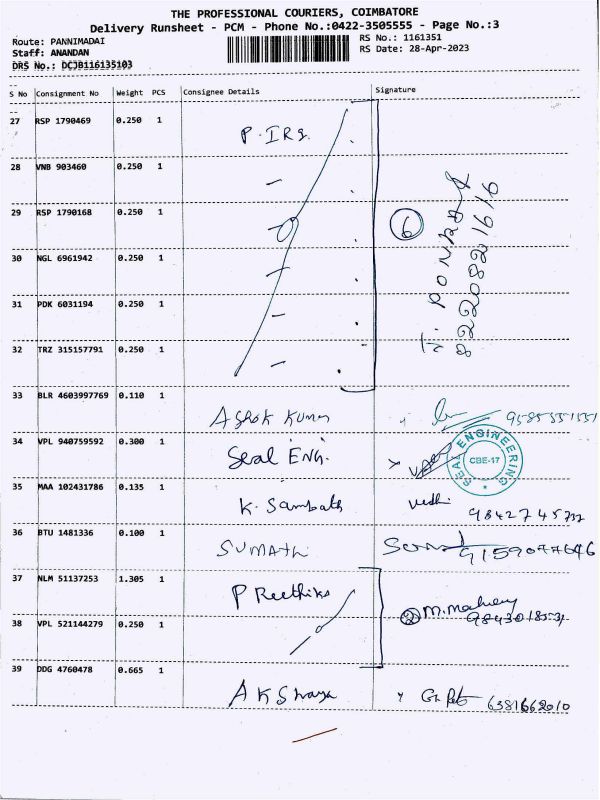 THE PROFESSIONAL COURIERS, COIMBATORE
Delivery Runsheet - PCM - Phone No.:0422-3505555 - Page No.:3
Route: PANNIMADAI
Staff: ANANDAN
DRS No.: DCJB116135103
RS No.: 1161351
RS Date: 28-Apr-2023
S No Consignment No Weight PCS Consignee Details Signature
27 RSP 1790469 0.250 1
28 VNB 903460 0.250 1
29 RSP 1790168 0.250 1
30 NGL 6961942 0.250 1
31 PDK 6031194 0.250 1
32 TRZ 315157791 0.250 1
6
8220821616
33 BLR 4603997769 0.110 1 Ashok Kumar
34 VPL 940759592 0.300 1 Seal ENG.
SEAL ENGINEERING
CBE-17
35 MAA 102431786 0.135 1 K. Sambath
36 BTU 1481336 0.100 1 SUMATHI
37 NLM 51137253 1.305 1 Preethika
38 VPL 521144279 0.250 1
2
39 DDG 4760478 0.665 1 AKShaya 6381662010